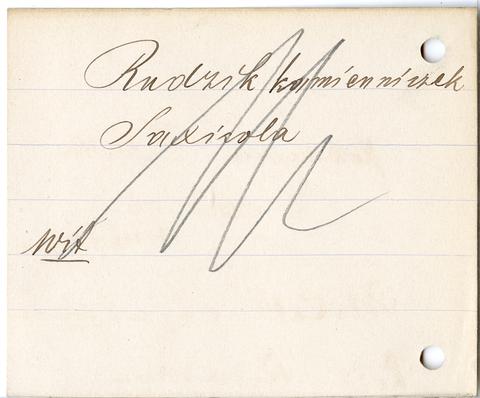 Rudzik kamienniczek
Saxicola
Wit